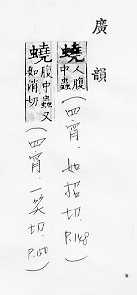 廣韻
蟯人腹中蟲(四宵、如招切、P.148)
蟯腹中蟲又如消切(四宵、一笑切、P.150)